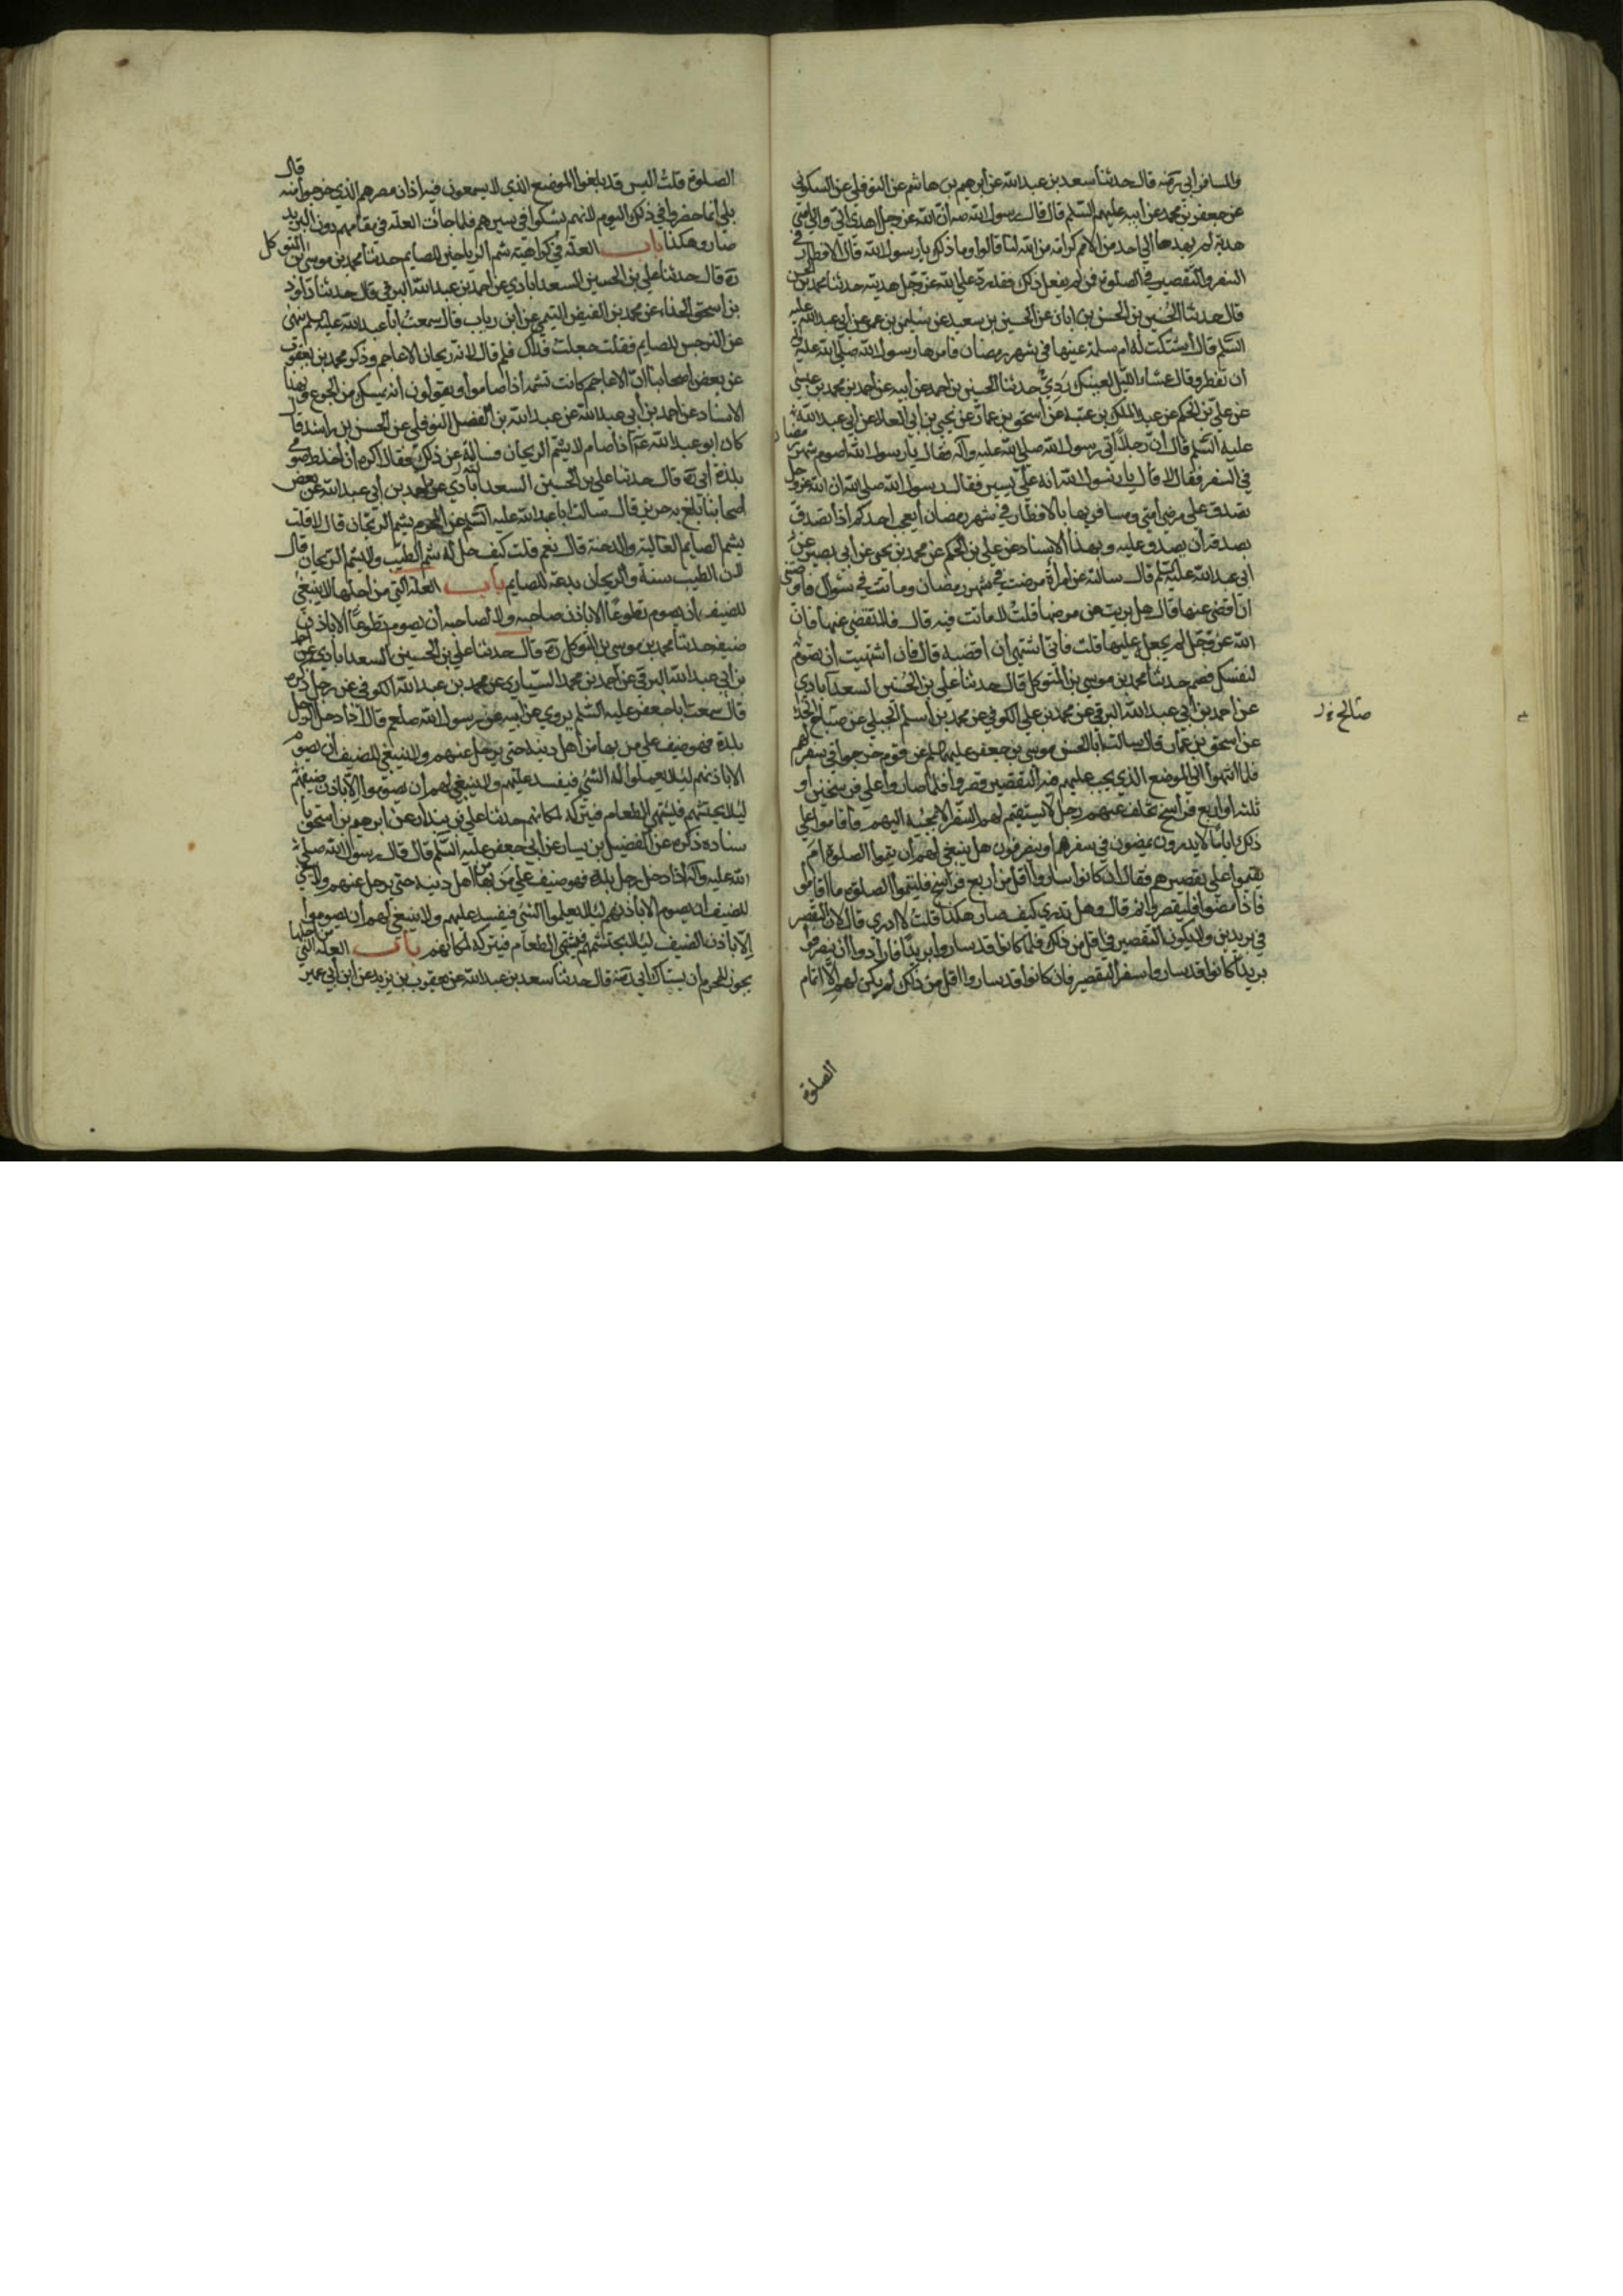 والمسافر ابي رحمه قال حدثنا سعد بن عبد الله عن ابرهيم بن هاشم عن النوفلي عن السكوني
عن جعفر بن محمد عن ابيه عليهم السلم قال قال رسول الله صه ان الله عز وجل اهدى الي والى امتي
هدية لم يهدها الى احد من الامم كرامة من الله لنا قالوا وما ذلك يا رسول الله قال الافطار في
السفر والتقصير في الصلوة فمن لم يفعل ذلك فقد رد على الله عز وجل هديته حدثنا محمد بن الحسن
قال حدثنا الحسين بن الحسن بن ابان عن الحسين بن سعيد عن سليمن بن عمرو عن ابي عبد الله عليه
السلم قال اشتكت ام سلمة عينها في شهر رمضان فامرها رسول الله صلى الله عليه واله
ان تفطر وقال عشاء الليل لعينك ردي حدثنا الحسين بن احمد عن ابيه عن احمد بن محمد بن عيسى
عن علي بن الحكم عن عبد الملك بن عتبة عن اسحق بن عمار عن يحيى بن ابي العلا عن ابي عبد الله
عليه السلم قال ان رجلا اتى رسول الله صلى الله عليه وآله فقال يا رسول الله اصوم شهر رمضان
في السفر فقال لا قال يا رسول الله انه علي يسير فقال رسول الله صلى الله ان الله عز وجل
تصدق على مرضى امتي ومسافريها بالافطار في شهر رمضان ايعجب احدكم اذا تصدق
بصدقة ان يصدق عليه وبهذا الاسناد عن علي بن الحكم عن محمد بن يحيى عن ابي بصير عن
ابي عبد الله عليه السلم قال سالته عن امراة مرضت في شهر رمضان وماتت في شوال فاوصتني
ان اقضي عنها قال هل برئت من مرضها قلت لا ماتت فيه قال فلا تقضي عنها فان
الله عز وجل لم يجعله عليها قلت فاني اشتهي ان اقضيه قال فان اشتهيت ان تصوم
لنفسك فصم حدثنا محمد بن موسى بن المتوكل قال حدثنا علي بن الحسين السعدابادي
عن احمد بن ابي عبد الله البرقي عن محمد بن علي الكوفي عن محمد بن اسلم الجبلي عن صباح الحذا
صالح خ ر
عن اسحق بن عمار قال سالت ابا الحسن موسى بن جعفر عليهما السلم عن قوم خرجوا في سفر لهم
فلما انتهوا الى الموضع الذي يجب عليهم فيه التقصير قصروا فلما صاروا على فرسخين او
ثلثة او اربع فراسخ تخلف عنهم رجل لا يستقيم لهم السفر الا بمجيئه اليهم فاقاموا على
ذلك اياما لا يدرون يمضون في سفرهم او ينصرفون هل ينبغي لهم ان يتموا الصلوة ام
يقيموا على تقصيرهم فقال ان كانوا ساروا اقل من اربع فراسخ فليتموا الصلوة ما اقاموا
فاذا مضوا فليقصروا ثم قال وهل تدري كيف صار هكذا قلت لا ادري قال لان التقصير
في بريدين ولا يكون التقصير في اقل من ذلك فلما كانوا قد ساروا بريدا فارادوا ان ينصرفوا
بريدا كانوا قد ساروا سفر التقصير فان كانوا قد ساروا اقل من ذلك لم يكن لهم الا اتمام
الصلوة
الصلوة قلت اليس قد بلغوا الموضع الذي لا يسمعون فيه اذان مصرهم الذي خرجوا منه قال
بلى انما قصروا في ذلك اليوم لانهم لم يشكوا في سيرهم فلما جائت العلة في مقامهم دون البريد
صاروا هكذا باب العلة في كراهية شم الرياحين للصايم حدثنا محمد بن موسى بن المتوكل
ره قال حدثنا علي بن الحسين السعدابادي عن احمد بن عبد الله البرقي قال حدثنا داود
بن اسحق الحذاء عن محمد بن الفيض التيمي عن ابن رياب قال سمعت ابا عبد الله عليه السلم ينهى
عن النرجس للصايم فقلت جعلت فداك فلم قال لانه ريحان الاعاجم وذكر محمد بن يعقوب
عن بعض اصحابنا ان الاعاجم كانت تشمه اذا صاموا ويقولون انه يمسك من الجوع وبهذا
الاسناد عن احمد بن ابي عبد الله عن عبد الله بن الفضل النوفلي عن الحسن بن راشد قال
كان ابو عبد الله ع اذا صام لا يشم الريحان فسالته عن ذلك فقال اكره ان اخلط صومي
بلذة ابي ره قال حدثنا علي بن الحسين السعدابادي عن احمد بن ابي عبد الله عن بعض
اصحابنا بلغ به حريز قال سالت ابا عبد الله عليه السلم عن المحرم يشم الريحان قال لا قلت
يشم الصايم الغالية والدخنة قال نعم قلت كيف حل له شم الطيب ولا يشم الريحان قال
لان الطيب سنة والريحان بدعة للصايم باب العلة التي من اجلها لا ينبغي
للضيف ان يصوم تطوعا الا باذن صاحبه ولا لصاحبه ان يصوم تطوعا الا باذن
ضيفه حدثنا محمد بن موسى بن المتوكل ره قال حدثنا علي بن الحسين السعدابادي عن احمد
بن ابي عبد الله البرقي عن احمد بن محمد السياري عن محمد بن عبد الله الكوفي عن رجل ذكره
قال سمعت ابا جعفر عليه السلم يروي عن ابيه عن رسول الله صلعم قال اذا دخل الرجل
بلدة فهو ضيف على من بها من اهل دينه حتى يرحل عنهم ولا ينبغي للضيف ان يصوم
الا باذنهم لئلا يعملوا له الشئ فيفسد عليهم ولا ينبغي لهم ان يصوموا الا باذن ضيفهم
لئلا يحتشمهم فيشتهي الطعام فيتركه لمكانهم حدثنا علي بن بندار عن ابرهيم بن اسحق با
سناده ذكره عن الفضيل بن يسار عن ابي جعفر عليه السلم قال قال رسول الله صلى
الله عليه وآله اذا دخل رجل بلدة فهو ضيف على من بها من اهل دينه حتى يرحل عنهم ولا ينبغي
للضيف ان يصوم الا باذنهم لئلا يعملوا الشئ فيفسد عليهم ولا ينبغي لهم ان يصوموا
الا باذن الضيف لئلا يحتشمهم فيشتهي الطعام فيتركه لمكانهم باب العلة التي من اجلها
يجوز للمحرم ان يستاك ابي رحمه قال حدثنا سعد بن عبد الله عن يعقوب بن يزيد عن ابن ابي عمير